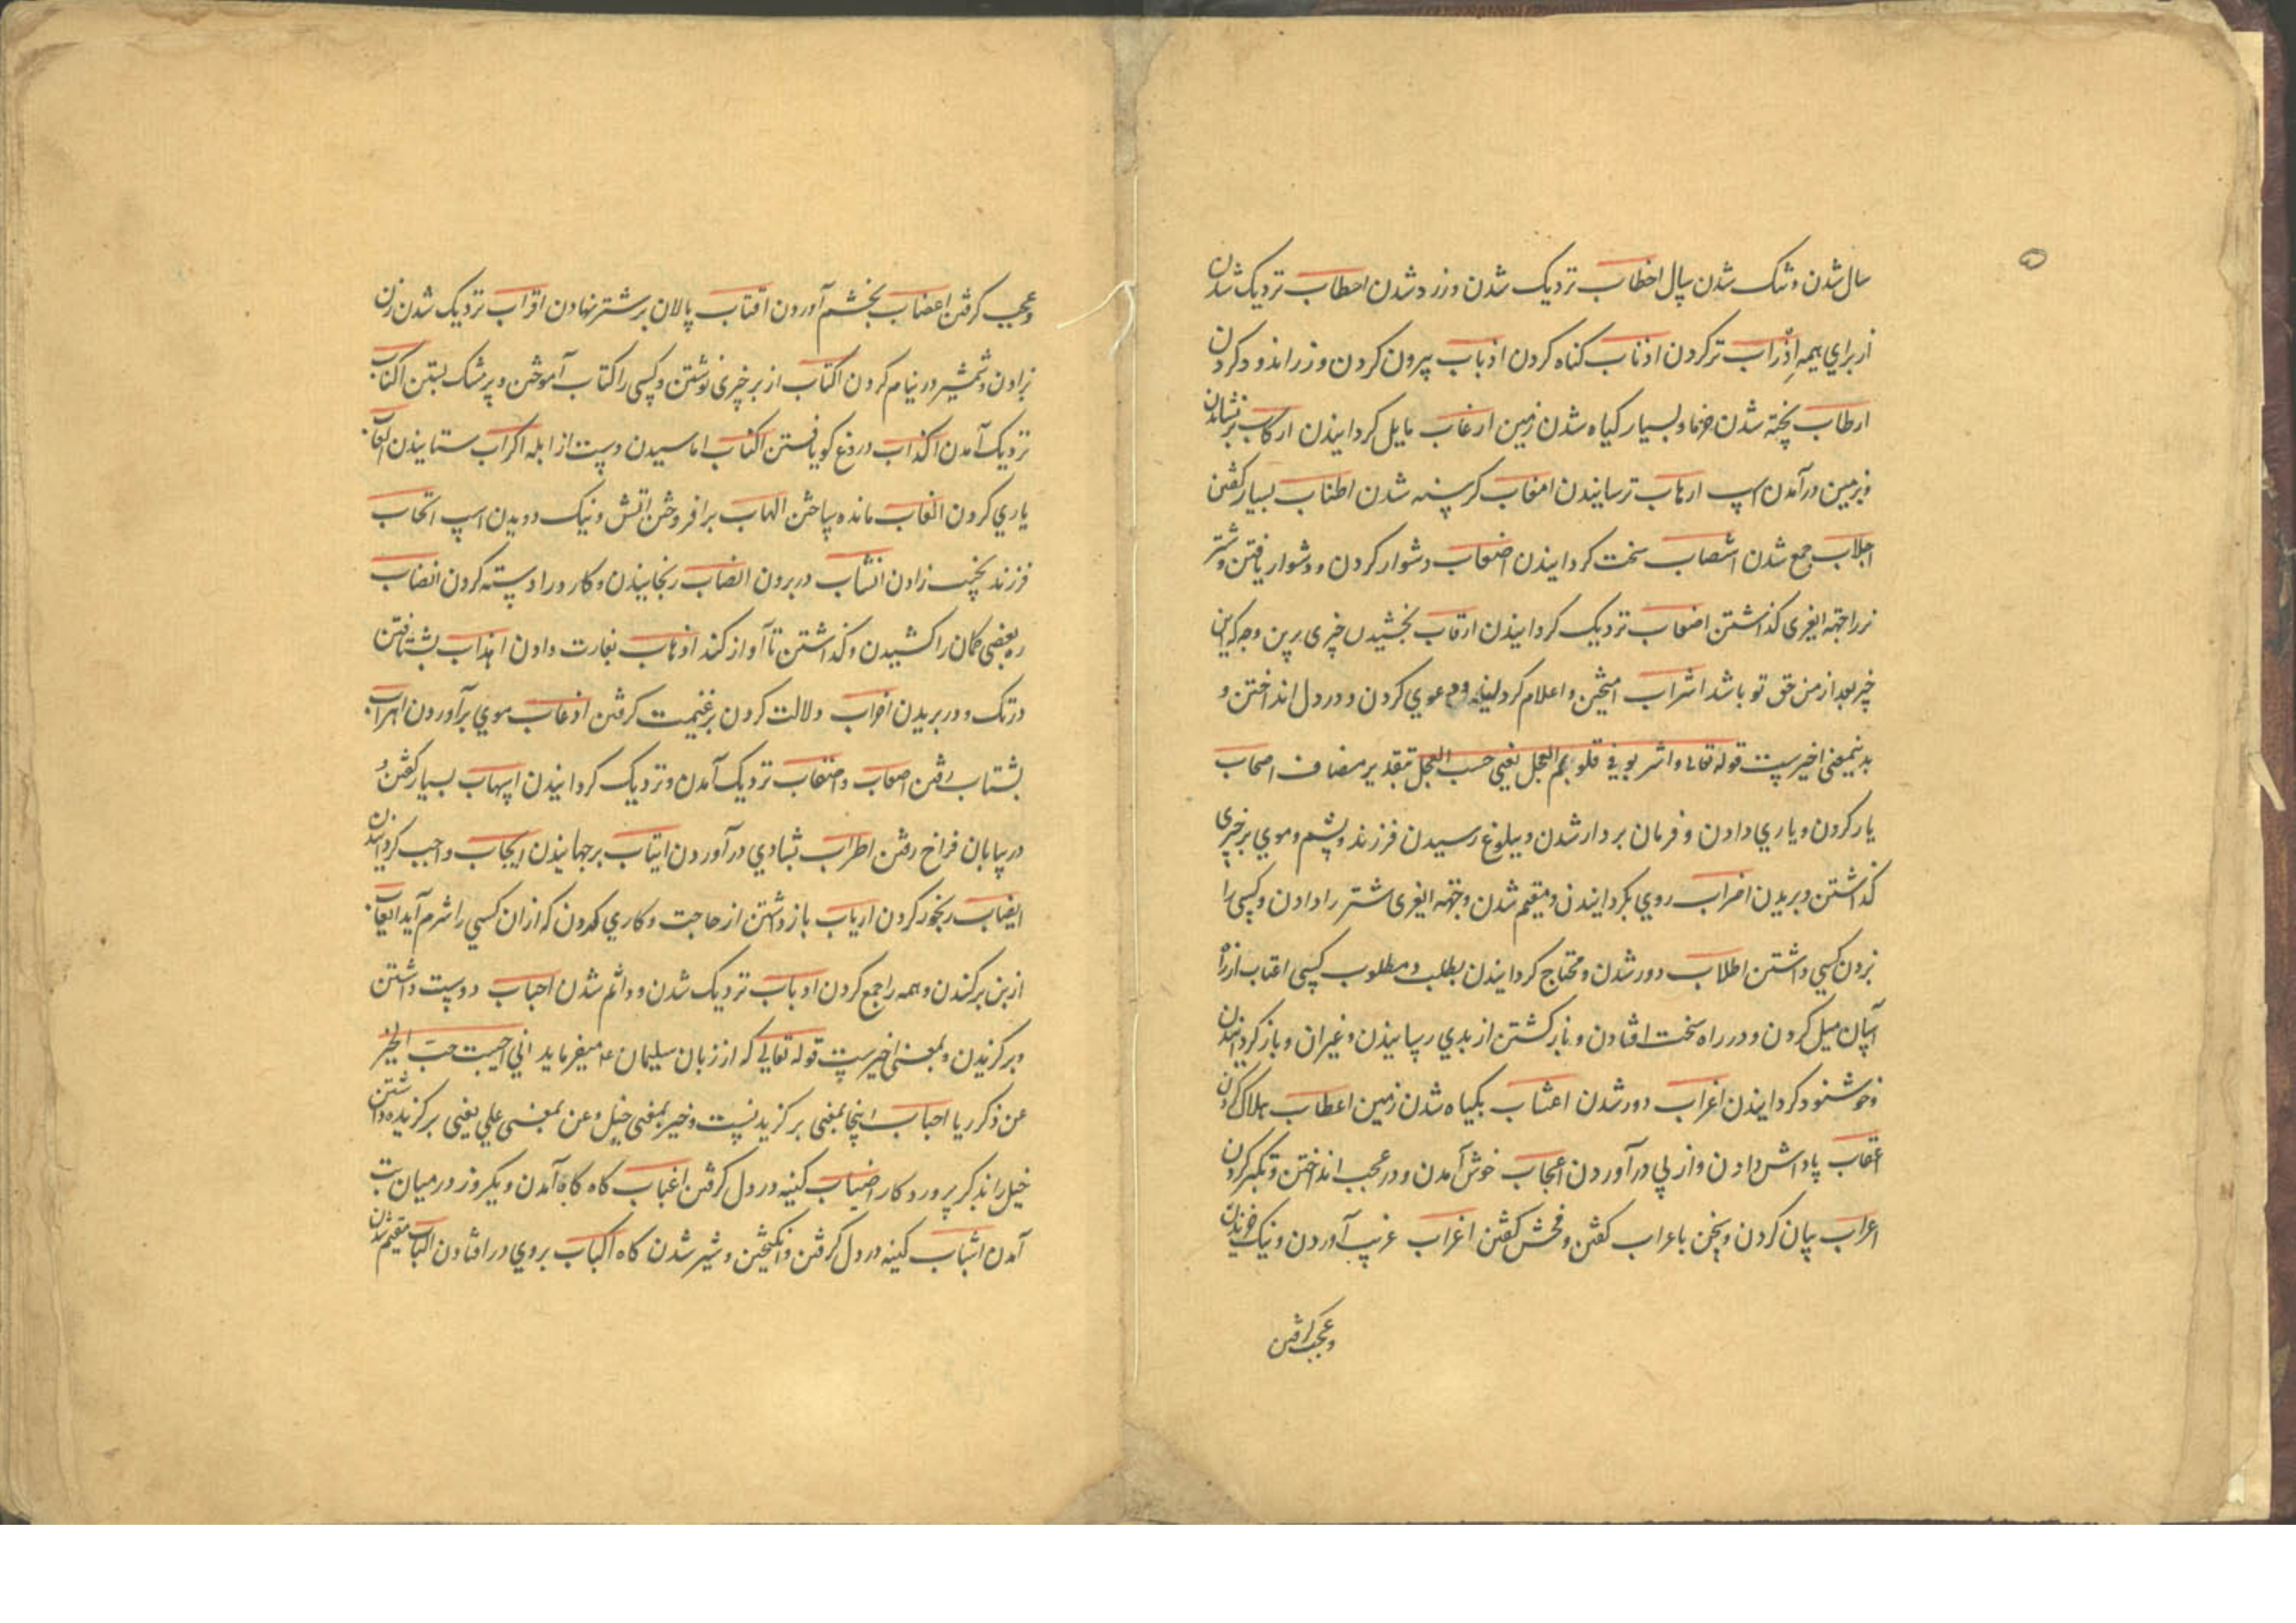 سال شدن و شک شدن سال اخطاب نزدیک شدن و زرد شدن احطاب نزدیک شدن
از برای هیمه اذراب تر کردن اذناب کناه کردن اذباب بیرون کردن و زر اندود کردن
ارطاب پخته شدن خرما و بسیار کیاه شدن زمین ارغاب مایل کردانیدن ارکاب بر نشاندن
و برمین در آمدن اسپ ارهاب ترسانیدن اسغاب کرسنه شدن اطناب بسیار کفتن
اجلاب جمع شدن اشصاب سخت کردانیدن اصعاب دشوار کردن و دشوار یافتن و شتر
نر را جهة ایغری کذاشتن اصقاب نزدیک کردانیدن ارقاب بخشیدن چیزی برین وجه که این
چیز بعد از من حق تو باشد اشراب آمیختن و اعلام کردانیدن و دعوی کردن و در دل انداختن و
بدینمعنی اخیرست قوله تعالی و اشربوا فی قلوبهم العجل یعنی حسب العجل بتقدیر مضاف اصحاب
یار کردن و یاری دادن و فرمان بردار شدن و ببلوغ رسیدن فرزند و پشم و موی بر چیزی
کذاشتن و بریدن اضراب روی بکردانیدن و مقیم شدن و جهة ایغری شتر را دادن و کسی را
بزدن کسی داشتن اطلاب دور شدن و محتاج کردانیدن بطلب و مطلوب کسی اعتاب از راه
آسان میل کردن و در راه سخت افتادن و باز کشتن از بدی رسانیدن و غیر آن و باز کردانیدن
و خوشنود کردانیدن اغراب دور شدن اعشاب بکیاه شدن زمین اعطاب هلاک کردن
اعقاب پاداش دادن و از پی در آوردن اعجاب خوش آمدن و در عجب انداختن و تکبر کردن
اعراب بیان کردن و سخن با عراب کفتن و فحش کفتن اغراب غریب آوردن و نیک خندیدن
و عجب کرفتن
و عجب کرفتن اغضاب بخشم آوردن اقتاب پالان بر شتر نهادن اقراب نزدیک شدن زن
بزادن و شمشیر در نیام کردن اکتاب از بر چیزی نوشتن و کسی را کتاب آموختن و سر مشک بستن اکثاب
نزدیک آمدن اکذاب دروغ کو یافتن اکناب اماسیدن دست از ابله اکراب ستابیدن العاب
یاری کردن الغاب مانده ساختن الهاب برافروختن اتش و نیک دویدن اسپ انجاب
فرزند نجیب زادن انشاب در بردن انصاب رنجانیدن و کارد را دسته کردن انضاب
زه بعضی کمان را کشیدن و کذاشتن تا آواز کند انهاب بغارت دادن اهذاب بشتافتن
در تک و دور بریدن اخراب دلالت کردن بر غنیمت کرفتن ازغاب موی بر آوردن اهراب
بشتاب رفتن اصعاب و اصقاب نزدیک آمدن و نزدیک کردانیدن اسهاب بسیار کفتن و
در بیابان فراخ رفتن اطراب بشادی در آوردن ایثاب برجهانیدن ایجاب واجب کردانیدن
ایصاب رنجور کردن ارباب باز داشتن از حاجت و کاری کردن که از ان کسی را شرم آید ایعاب
از بن برکندن و همه را جمع کردن ارباب نزدیک شدن و دائم شدن احباب دوست داشتن
و بر کزیدن و بمعنی اخیرست قوله تعالی که از زبان سلیمان ع میفرماید انی احببت حب الخیر
عن ذکر ربی احباب اینجا بمعنی بر کزیدنست و خیر بمعنی خیل و عن بمعنی علی یعنی بر کزیده داشتن
خیل را بذکر پروردکار اضباب کینه در دل کرفتن اغباب کاه کاه آمدن و یکروز در میان تب
آمدن اشباب کینه در دل کرفتن و انکیختن و شیر شدن کاه اکباب بروی در افتادن الباب مقیم شدن